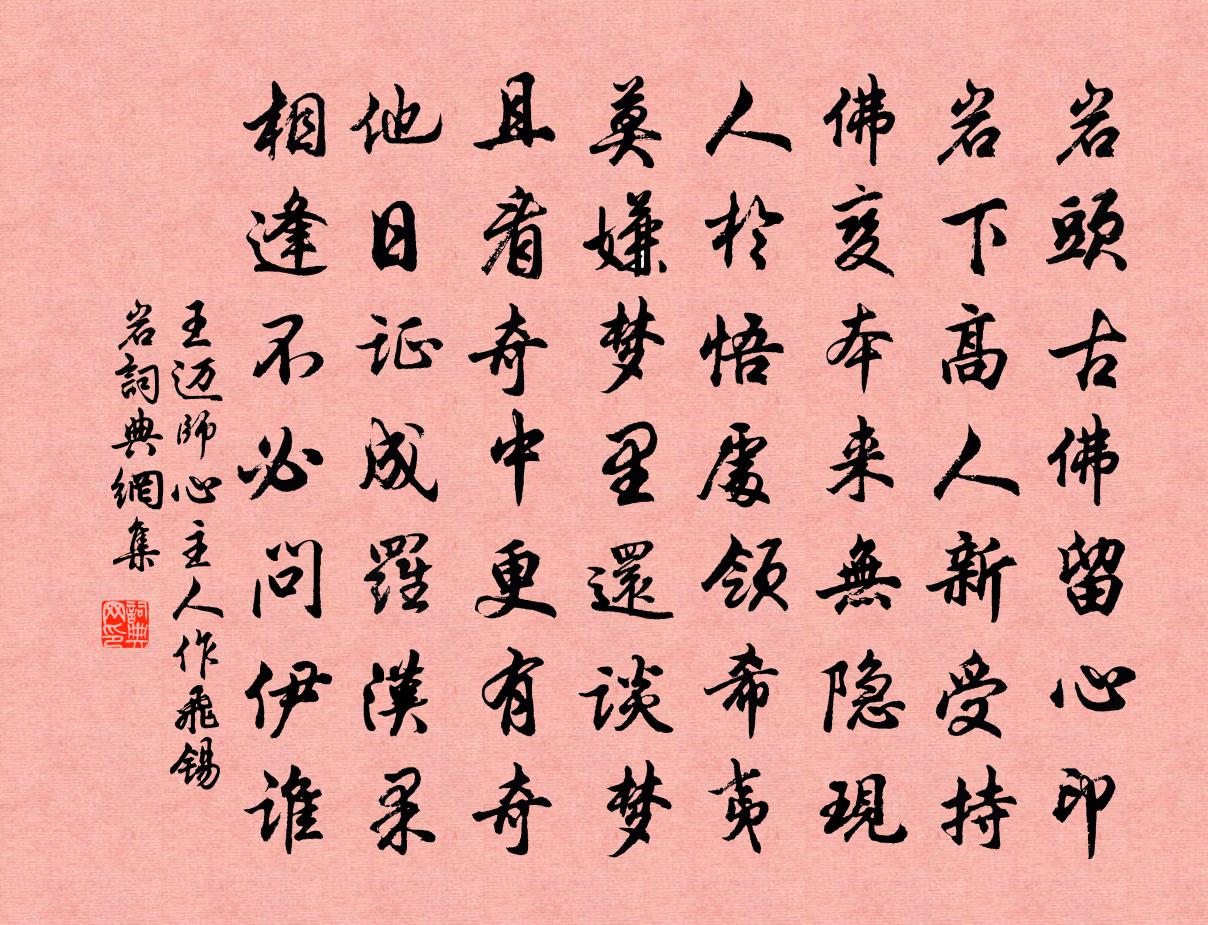 岩頭古佛留心印
岩下高人新受持
佛变本来無隐現
人於悟處领希夷
莫嫌梦里還谈梦
且看奇中更有奇
他日证成羅漢果
相逢不必问伊谁
王迈師心主人作飛锡
岩詞典網集
詞典网印